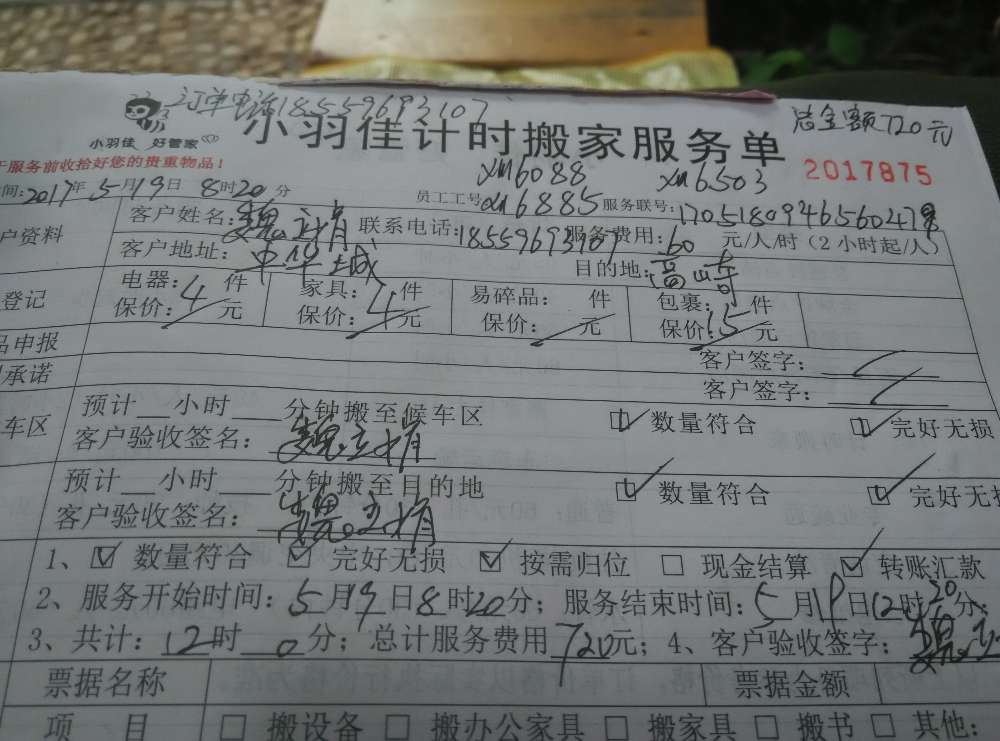 订单电话18559693107
小羽佳 好管家
小羽佳计时搬家服务单
总金额720元
服务前收拾好您的贵重物品!
xm6088 xm6503
2017875
间:2017年5月19日8时20分
员工工号xm6885 服务联号:
户资料 客户姓名: 联系电话:18559693107 服务费用:60元/人/时(2小时起/人)
客户地址:中华城 目的地:高崎
登记 电器:4件 家具:4件 易碎品: 件 包裹:15件
保价: 元 保价: 元 保价: 元 保价: 元
品申报 客户签字:
承诺 客户签字:
车区 预计__小时__分钟搬至候车区 数量符合 完好无损
客户验收签名:
预计__小时__分钟搬至目的地 数量符合 完好无损
客户验收签名:
1、☑数量符合 ☑完好无损 ☑按需归位 □现金结算 ☑转账汇款
2、服务开始时间:5月19日8时20分;服务结束时间:5月19日12时20分;
3、共计:12时0分;总计服务费用720元;4、客户验收签字:
票据名称 票据金额
项目 □搬设备 □搬办公家具 □搬家具 □搬书 □其他: